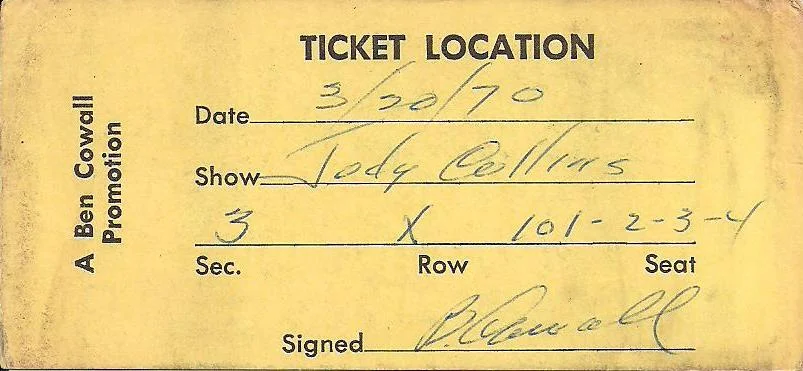 A Ben Cowall
Promotion
TICKET LOCATION
Date 3/20/70
Show Judy Collins
3 X 101-2-3-4
Sec. Row Seat
Signed B Cowall